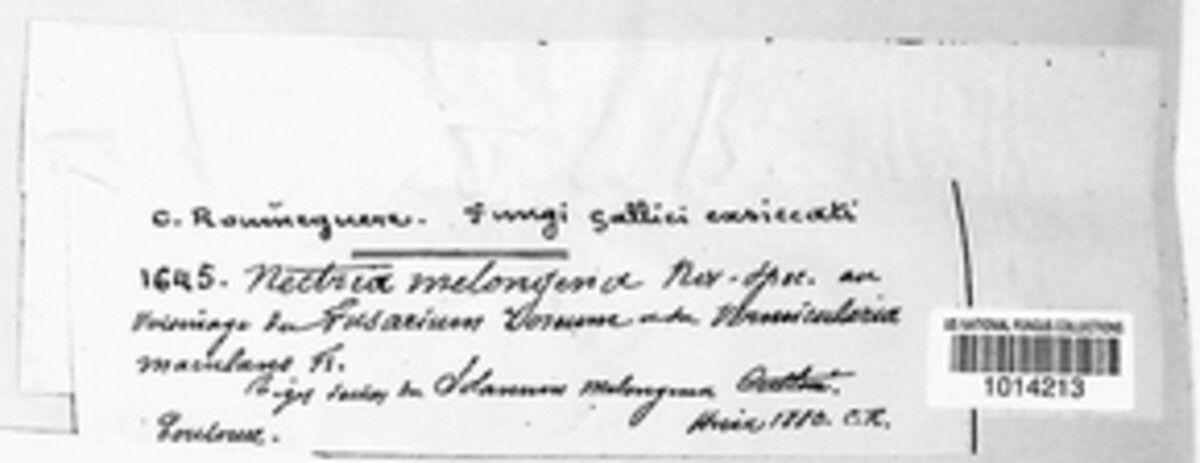 C. Roumeguere. Fungi Gallici exsiccati
1645. Nectria melongena Rou. Spec. au
Voisinage du Fusarium et du Vermicularia
maculans
Tiges sèches du Solanum melongena
Toulouse. Hiver 1880. C.R.
US NATIONAL FUNGUS COLLECTIONS
1014213